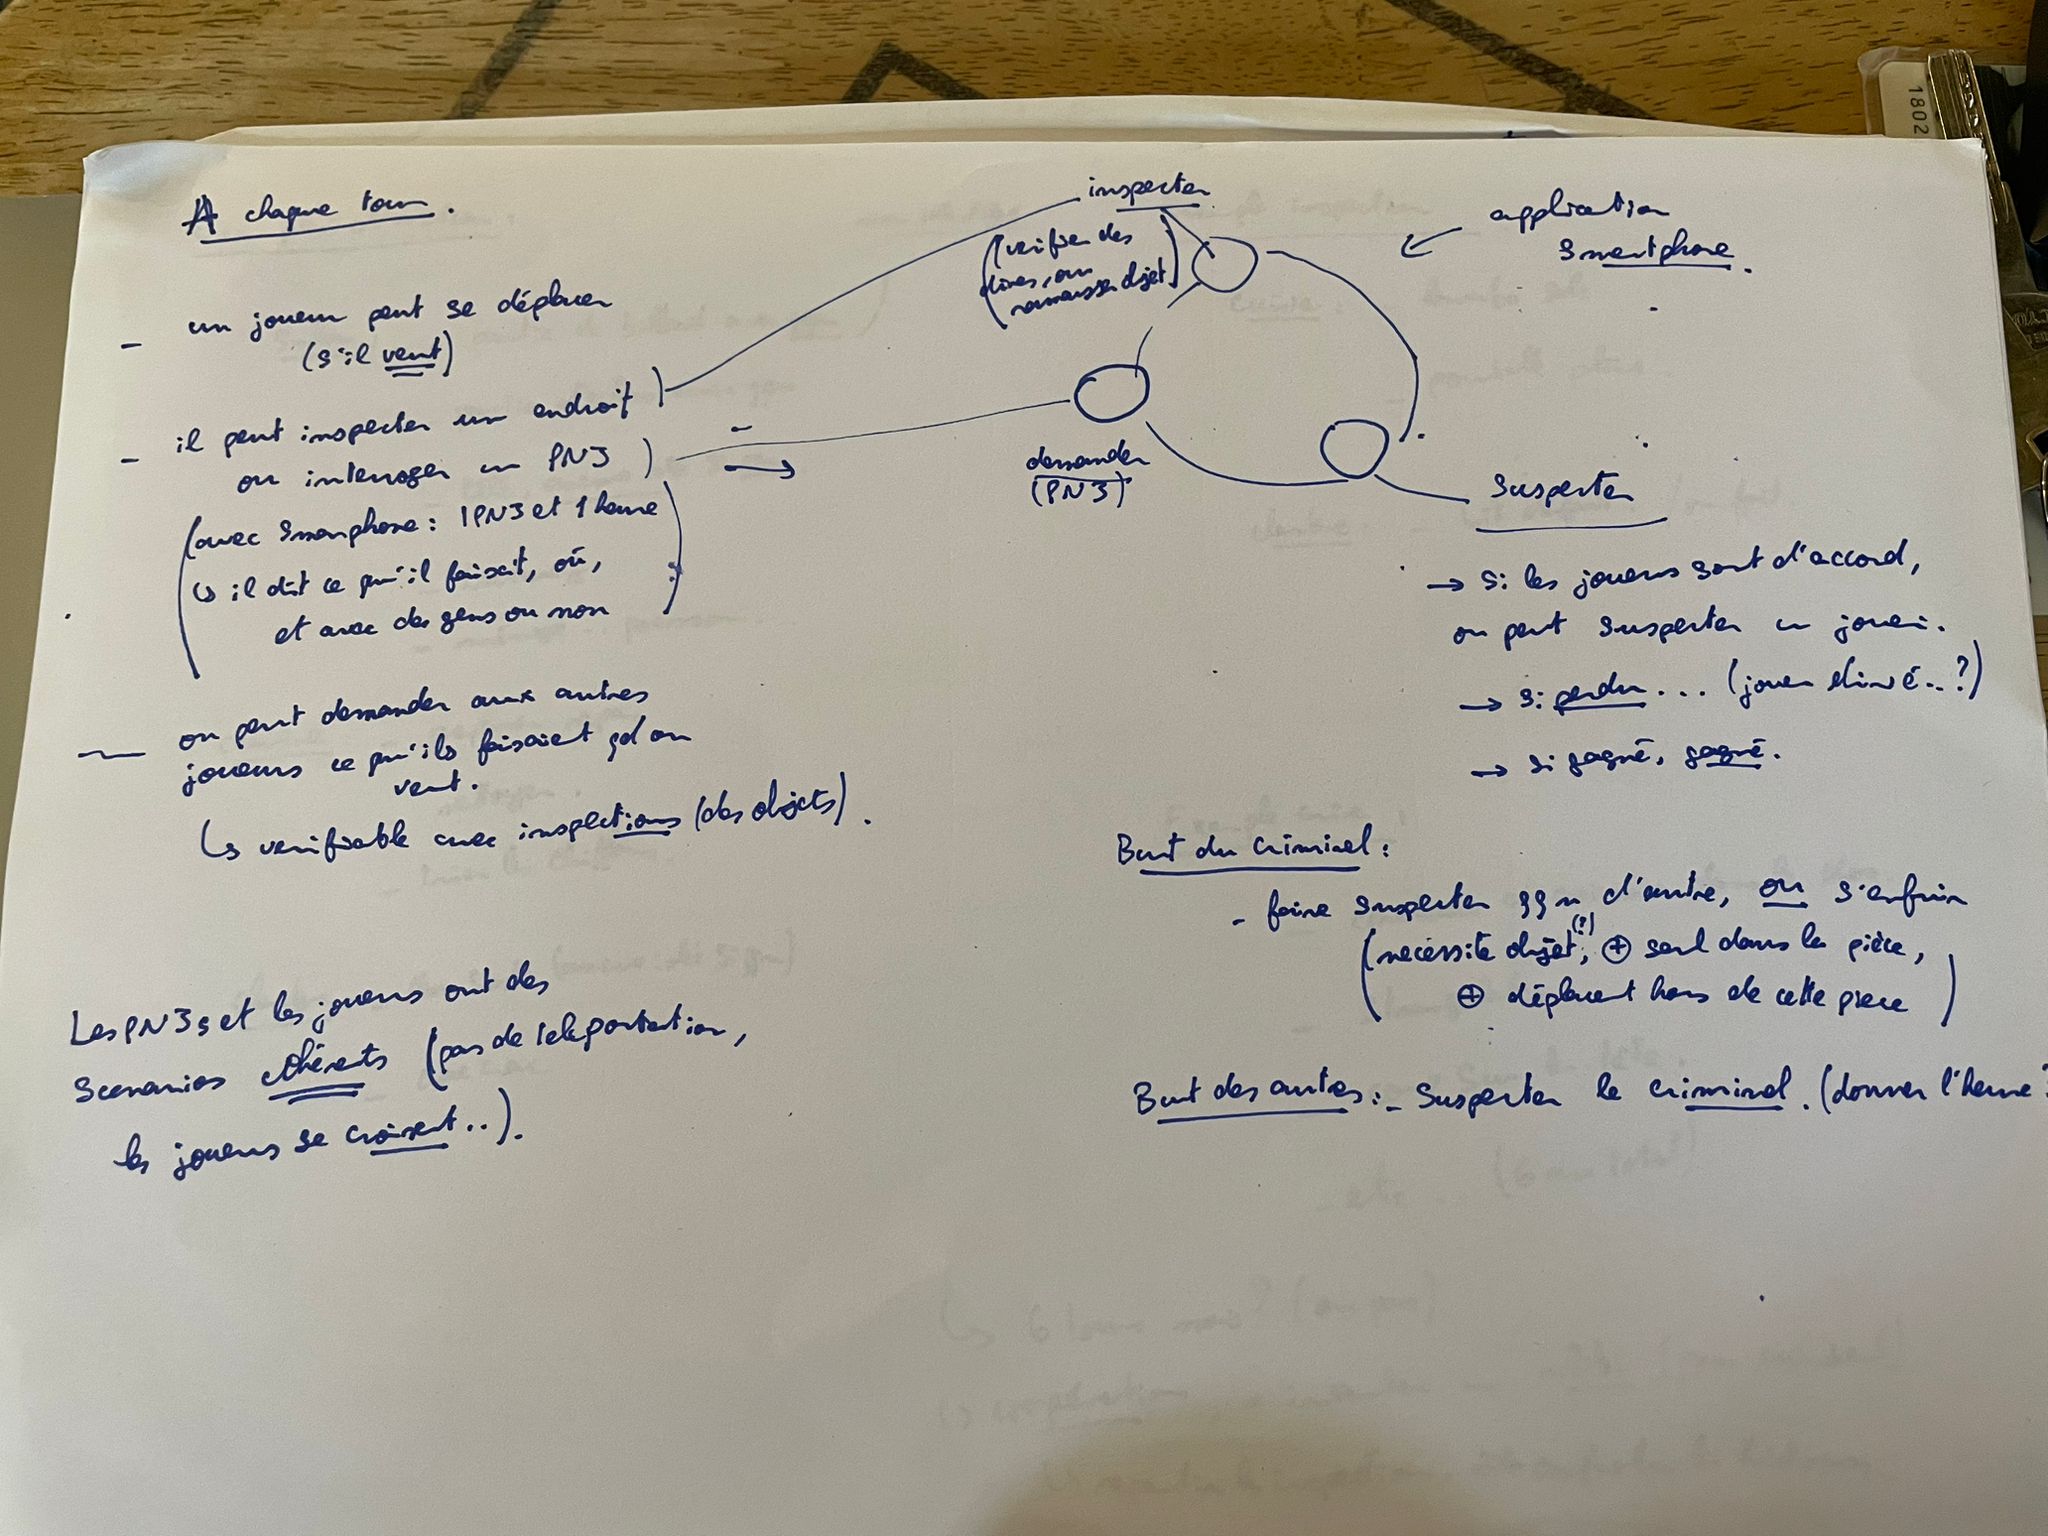 A chaque tour.
- un joueur peut se déplacer
(s'il veut)
- il peut inspecter un endroit
ou interroger un PNJ
(avec Smartphone : 1 PNJ et 1 heure
↳ il dit ce qu'il faisait, où,
et avec des gens ou non)
- on peut demander aux autres
joueurs ce qu'ils faisaient qd on
veut.
↳ verifiable avec inspections (des objets).
Les PNJs et les joueurs ont des
Scenarios cohérents (pas de teleportation,
les joueurs se croisent..).
inspecter
(verifier des
dires, ou
ramasser objet)
application
Smartphone.
demander
(PNJ)
Suspecter
→ Si les joueurs sont d'accord,
on peut suspecter un joueur.
→ Si perdu... (joueur éliminé..?)
→ Si gagné, gagné.
But du Criminel :
- faire suspecter qqn d'autre, ou s'enfuir
(nécessite objet(?), ⊕ seul dans la pièce,
⊕ déplacent hors de cette piece)
But des autres : - Suspecter le criminel. (donner l'heure?
1802